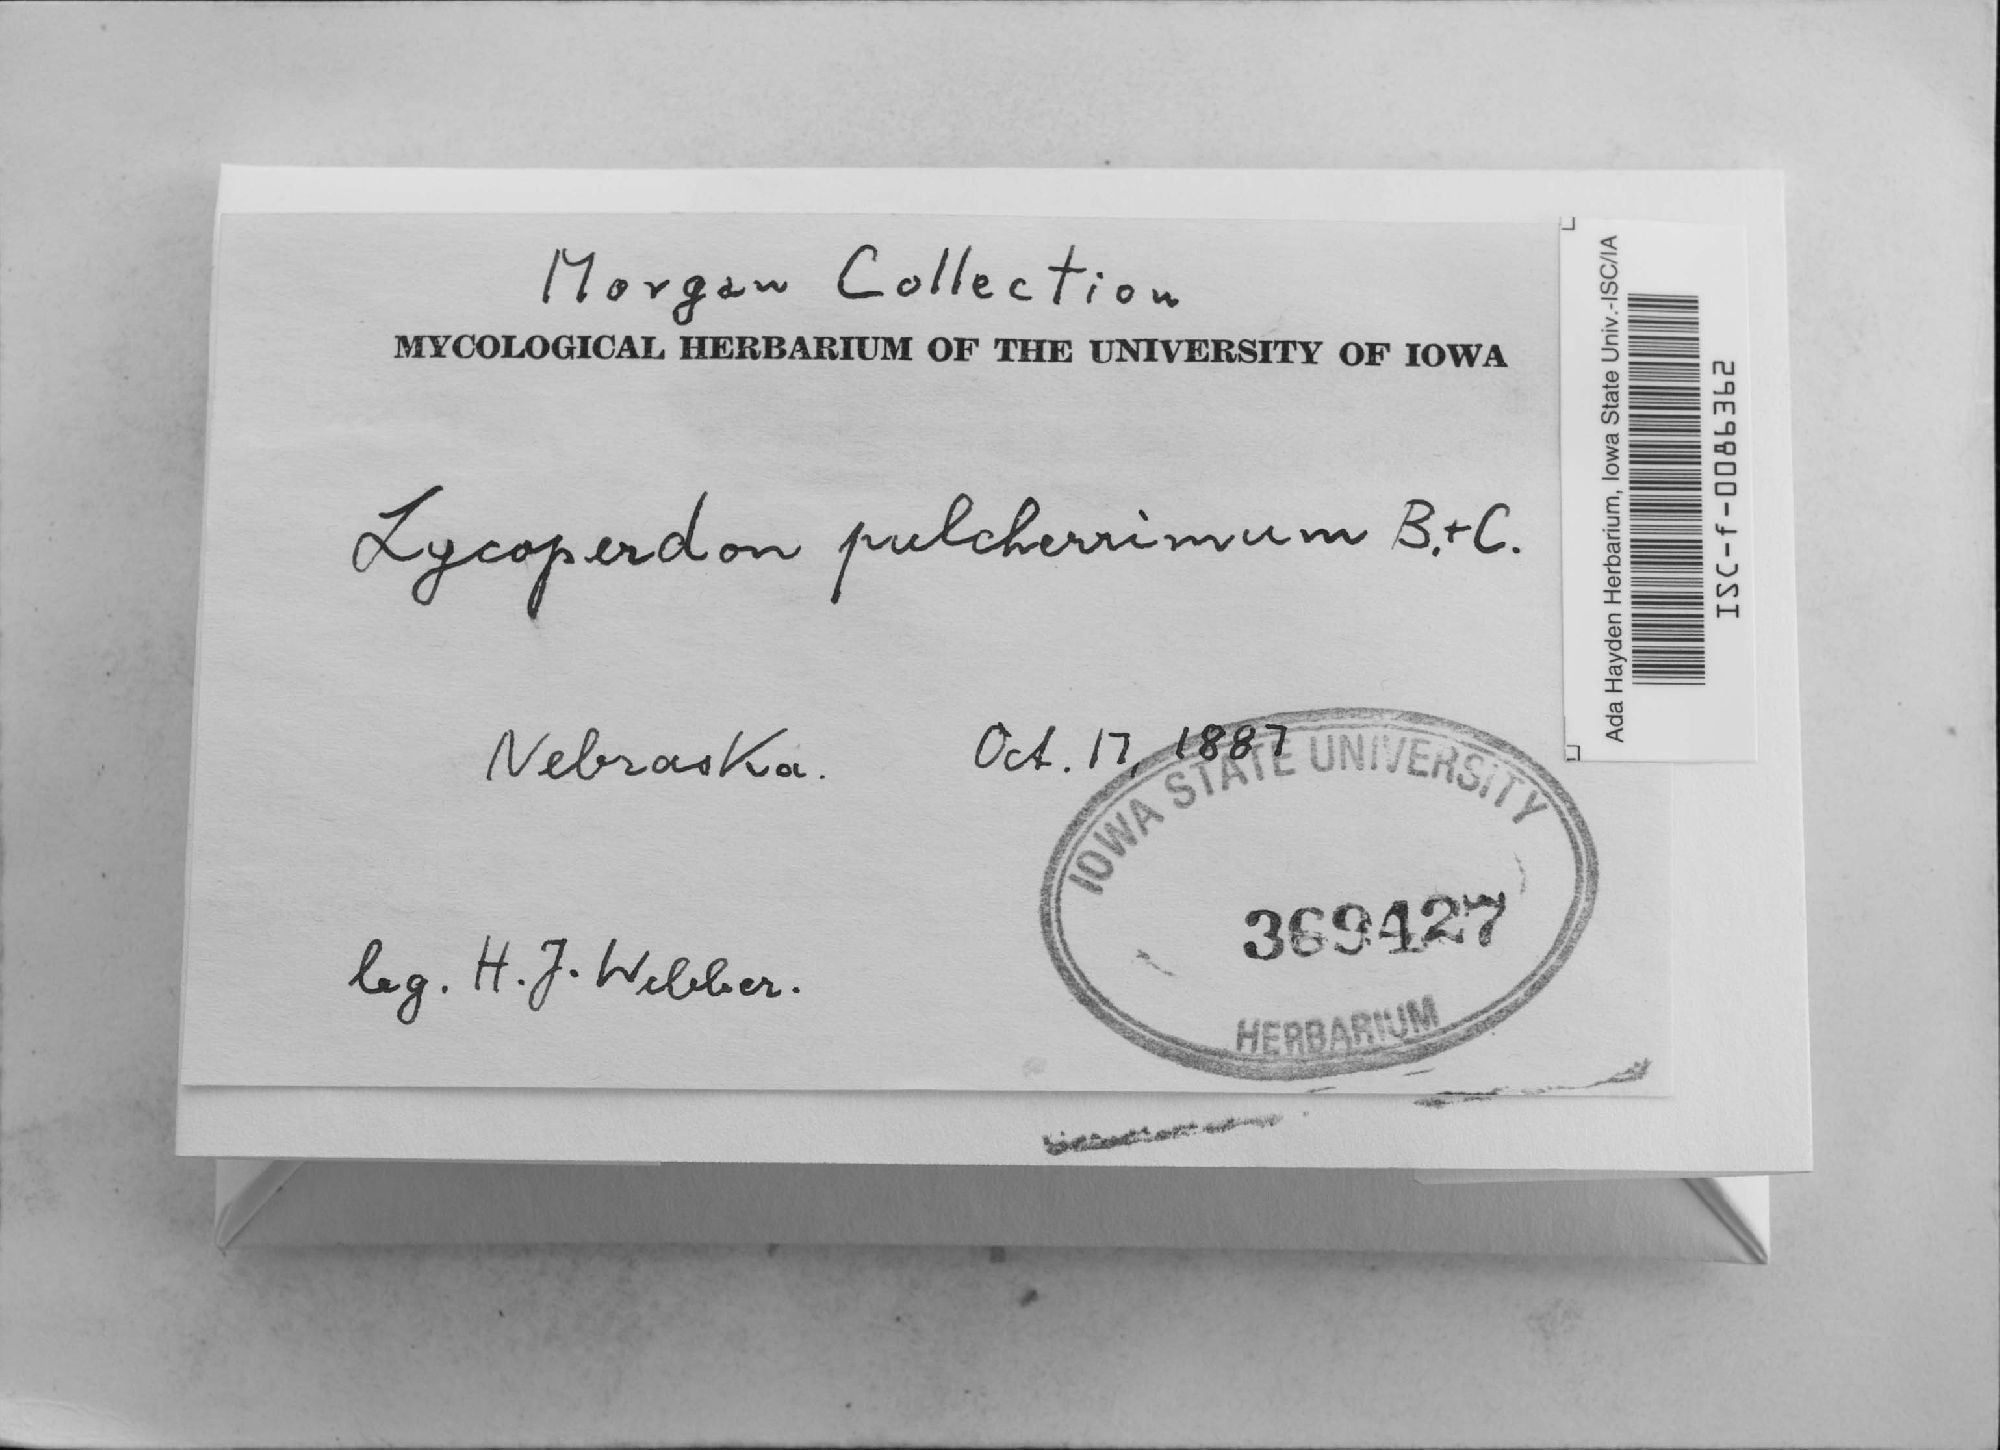 Morgan Collection
MYCOLOGICAL HERBARIUM OF THE UNIVERSITY OF IOWA
Lycoperdon pulcherrimum B.+C.
Nebraska. Oct. 17, 1887
leg. H. J. Webber.
IOWA STATE UNIVERSITY
369427
HERBARIUM
Ada Hayden Herbarium, Iowa State Univ.-ISC/IA
ISC-f-0086362